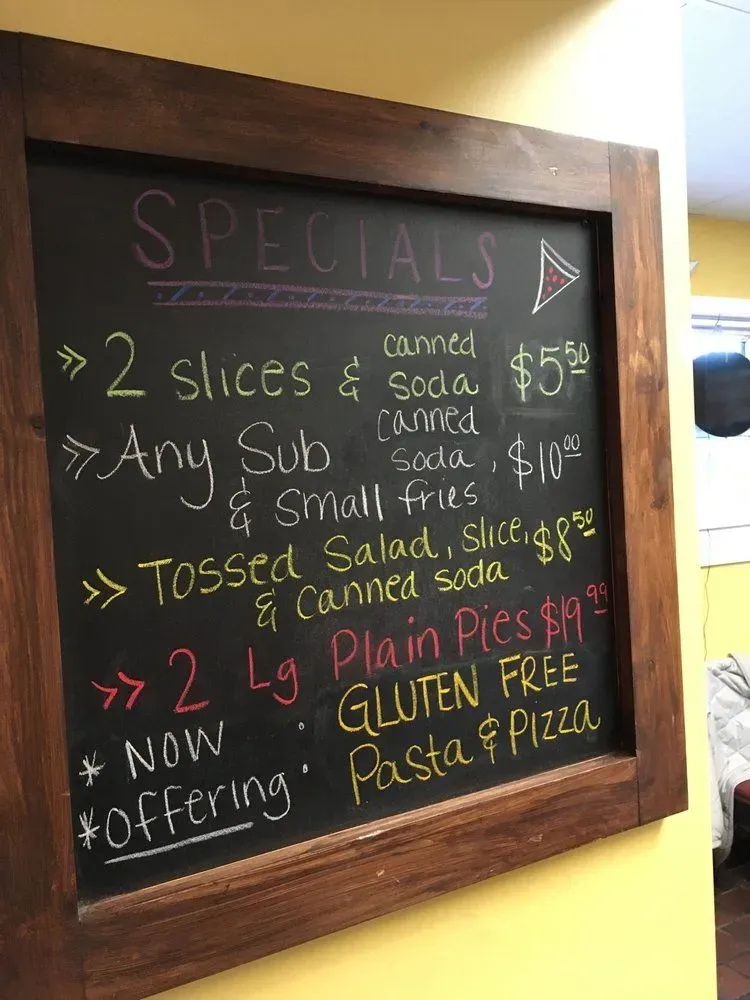 SPECIALS
» 2 slices & canned soda $5.50
» Any Sub canned soda, $10.00
& small fries
» Tossed Salad, slice, $8.50
& canned soda
» 2 Lg Plain Pies $19.99
* NOW : GLUTEN FREE
*offering: Pasta & Pizza